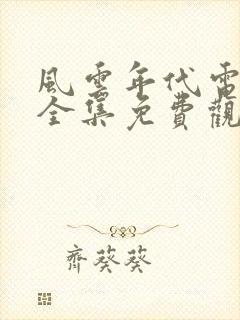 風雲年代電
全集免費觀
齊葵葵